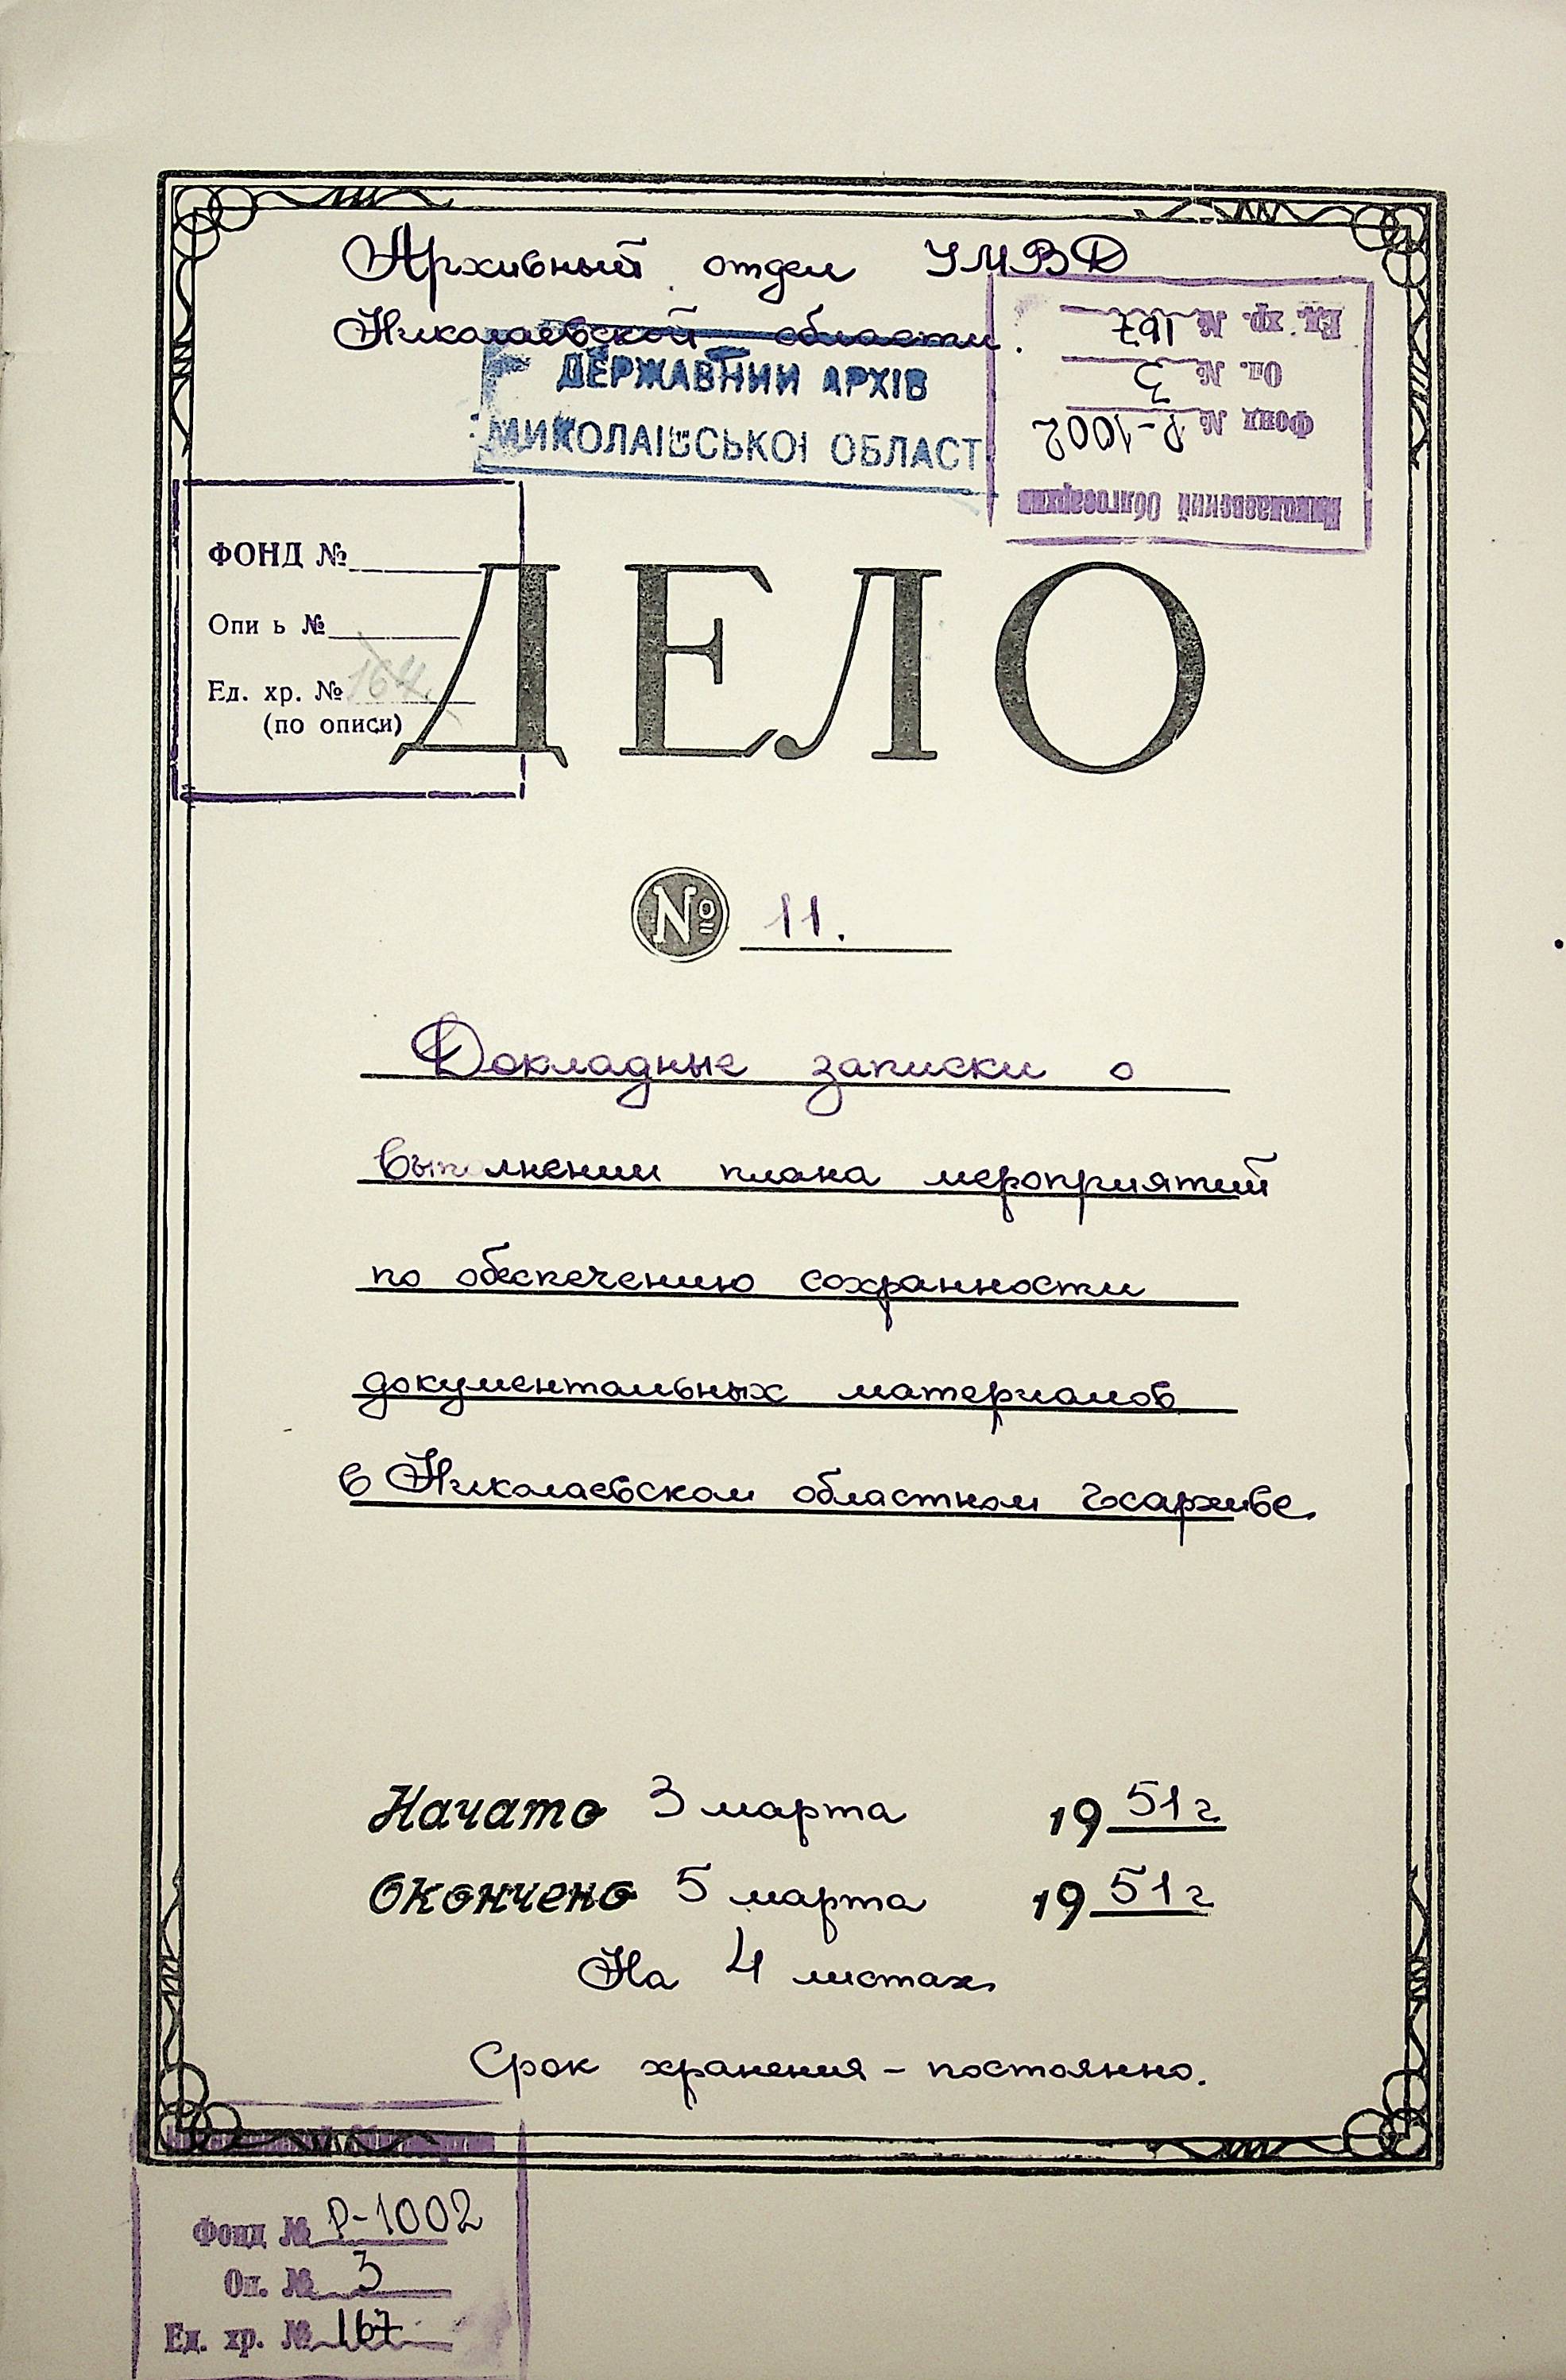 Архивный отдел УМВД
Николаевской области.
ДЕРЖАВНИЙ АРХІВ
МИКОЛАЇВСЬКОЇ ОБЛАСТ
Николаевский Облгосархив
Фонд № Р-1002
Оп. № 3
Ед. хр. № 167
ФОНД №
Опи ь №
Ед. хр. № 164
(по описи)
ДЕЛО
№ 11.
Докладные записки о
выполнении плана мероприятий
по обеспечению сохранности
документальных материалов
в Николаевском областном госархиве.
Начато 3 марта 1951г
Окончено 5 марта 1951г
На 4 листах
Срок хранения - постоянно.
Николаевский Облгосархив
Фонд № Р-1002
Оп. № 3
Ед. хр. № 167